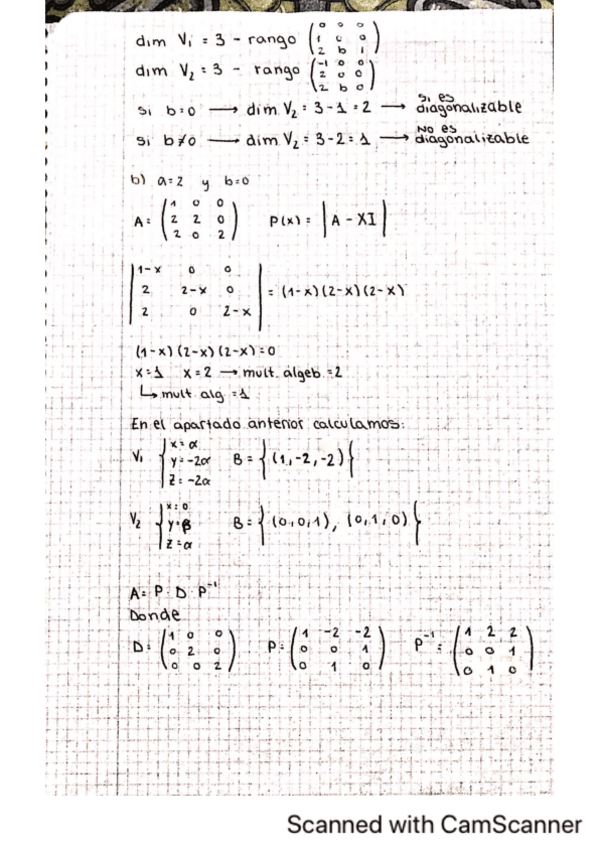 dim V₁ = 3 - rango (0 0 0
1 0 0
2 b 1)
dim V₂ = 3 - rango (-1 0 0
2 0 0
2 b 0)
Si b=0 → dim V₂ = 3-1 = 2 → Si es diagonalizable
Si b≠0 → dim V₂ = 3-2 = 1 → No es diagonalizable
b) a=2 y b=0
A = (1 0 0
2 2 0
2 0 2) P(x) = |A - XI|
|1-x 0 0
2 2-x 0
2 0 2-x| = (1-x)(2-x)(2-x)
(1-x)(2-x)(2-x)=0
x=1 x=2 → mult. álgeb =2
↳ mult. alg =1
En el apartado anterior calculamos:
V₁ { x=α
y=-2α
z=-2α B = {(1,-2,-2)}
V₂ { x=0
y=β
z=α B = {(0,0,1), (0,1,0)}
A= P · D · P⁻¹
Donde
D= (1 0 0
0 2 0
0 0 2) P= (1 -2 -2
0 0 1
0 1 0) P⁻¹= (1 2 2
0 0 1
0 1 0)
Scanned with CamScanner